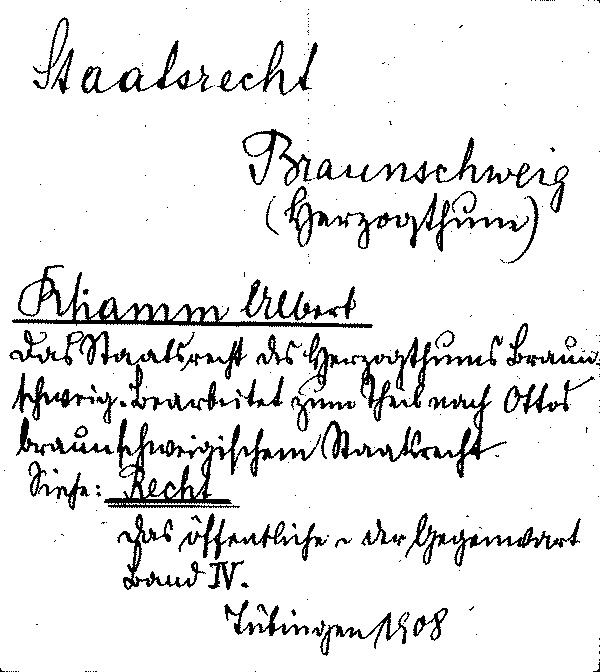 Staatsrecht
Braunschweig
(Herzogthum)
Rhamm Albert
Das Staatsrecht des Herzogthums Braun
schweig. Bearbeitet zum Theil nach Ottos
braunschweigischem Staatsrecht.
Siehe: Recht
Das öffentliche - der Gegenwart
Band IV.
Tübingen 1908